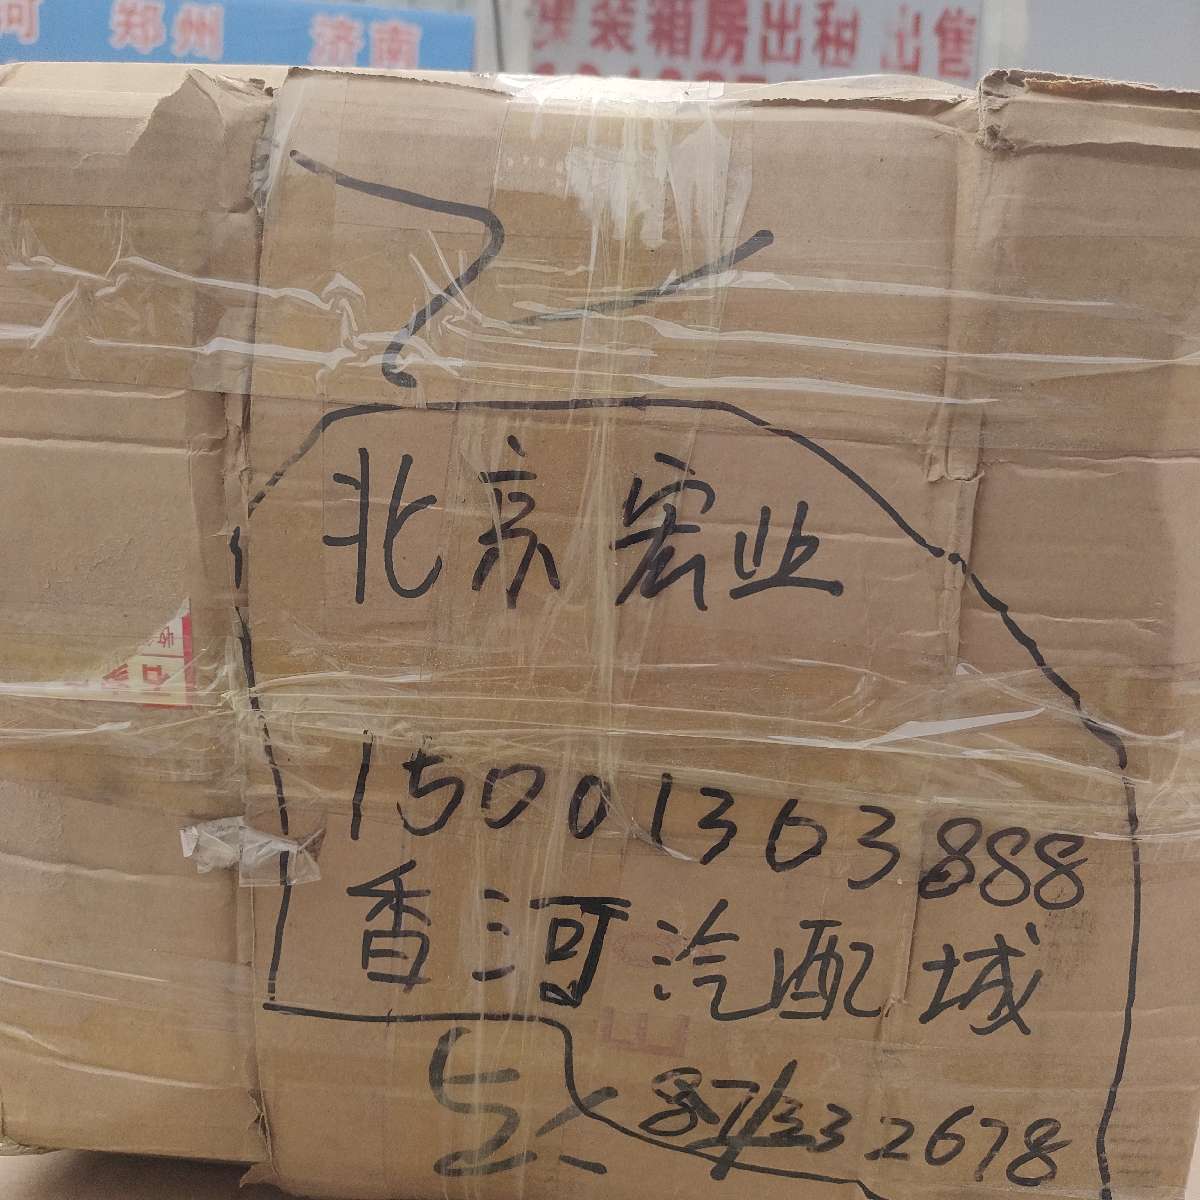 河 郑州 济南
集装箱房出租 出售
北京宏业
15001363888
香河汽配城
2678